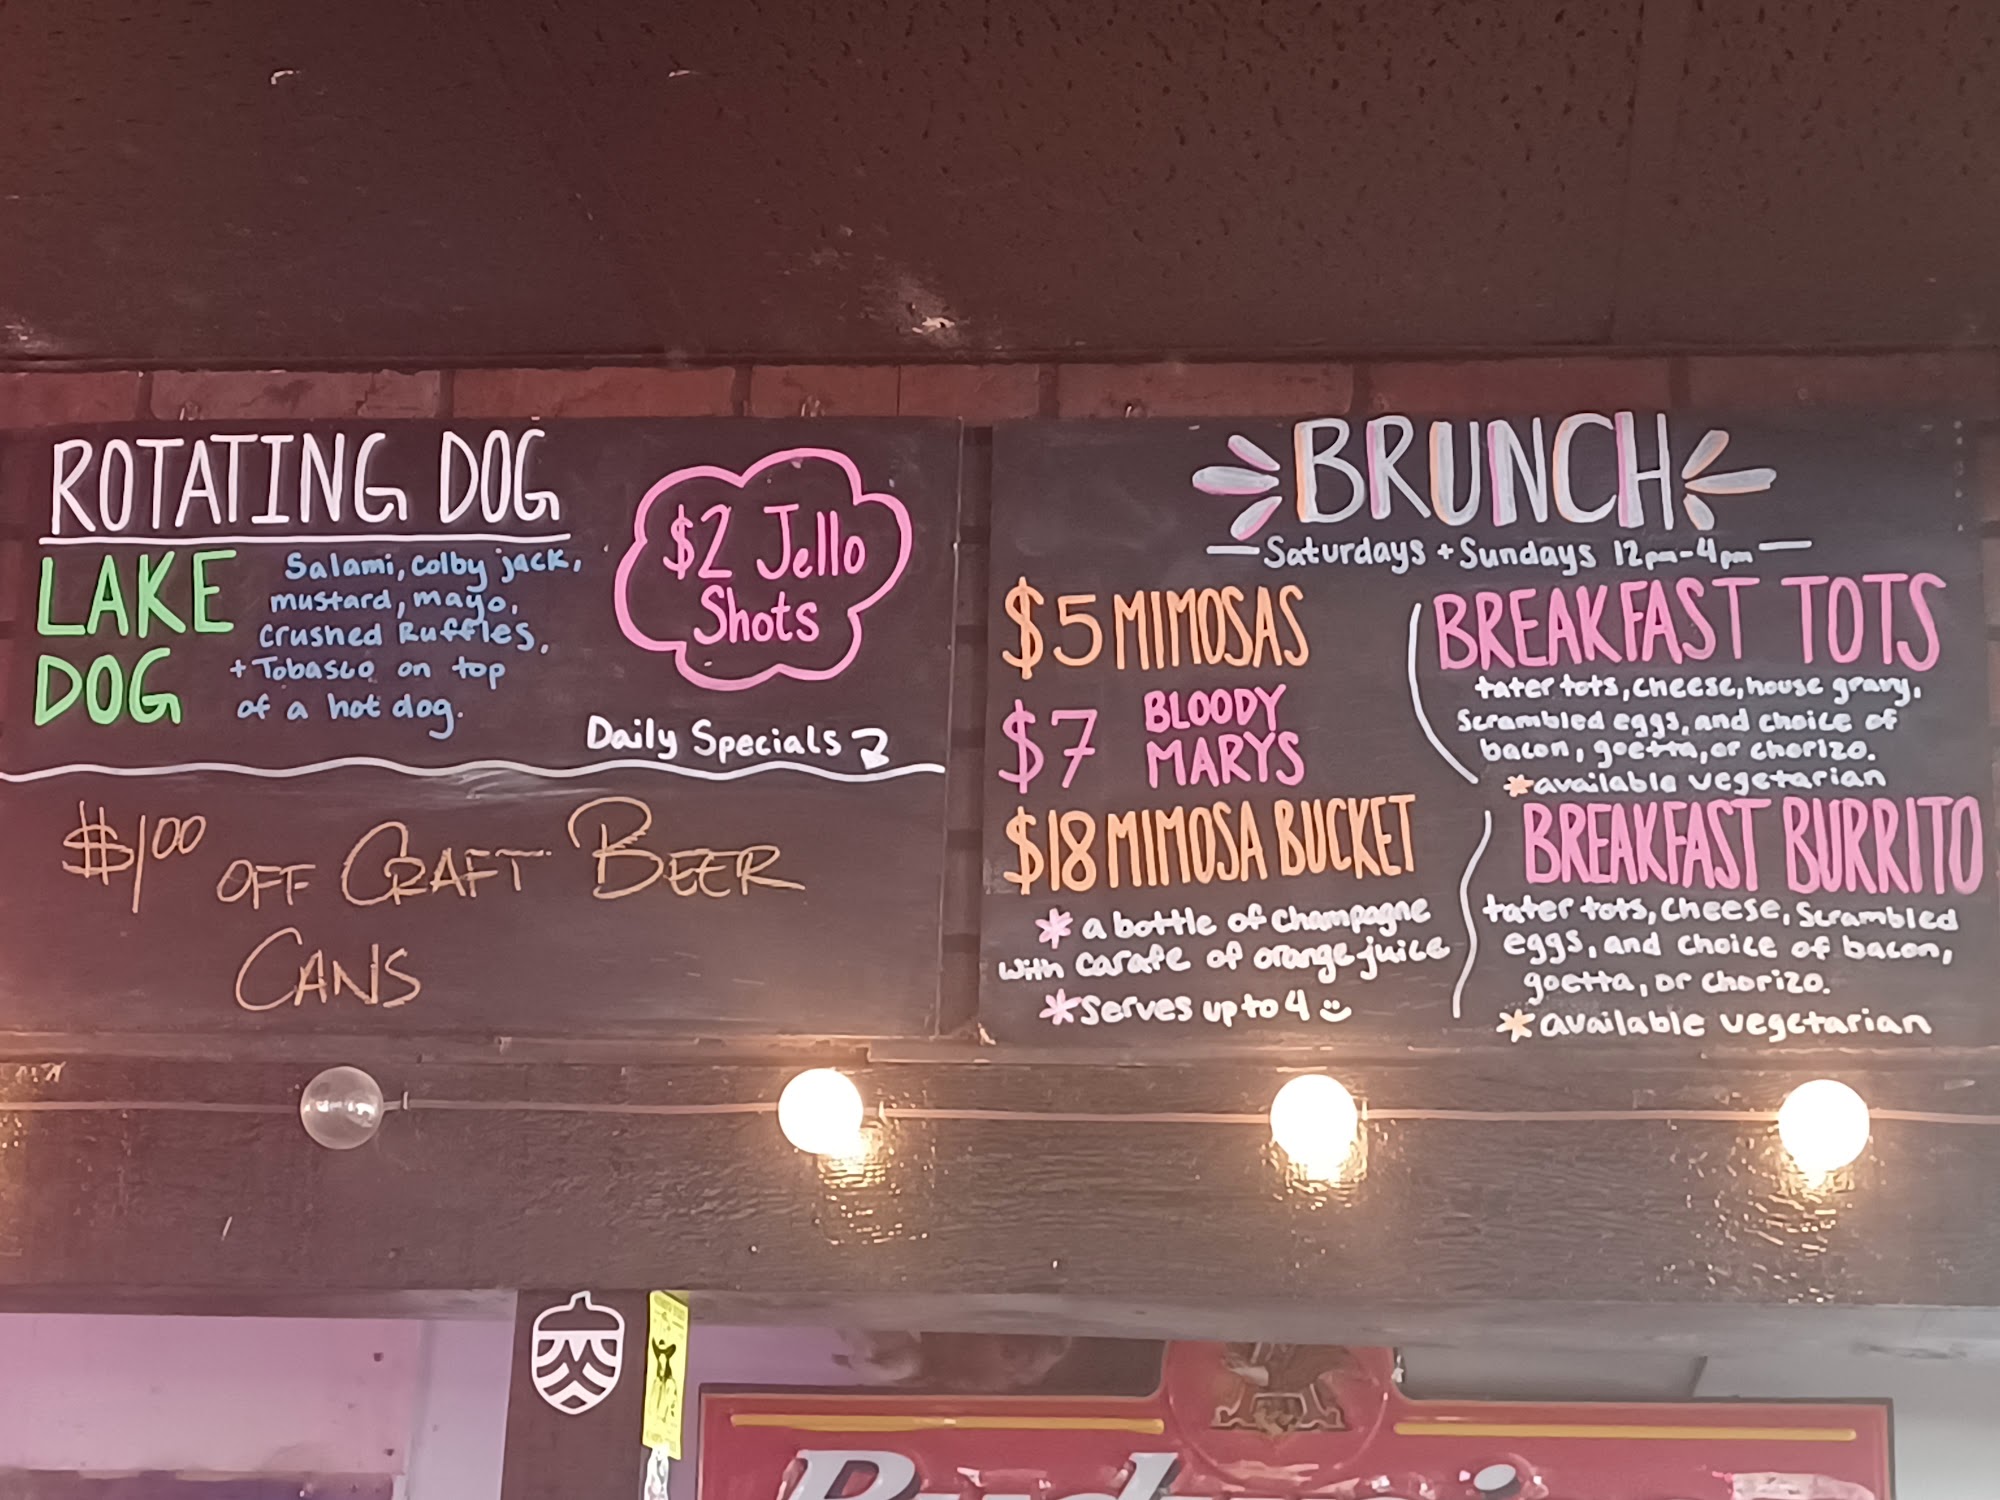 ROTATING DOG
LAKE
DOG
Salami, colby jack,
mustard, mayo,
crushed Ruffles,
+ Tobasco on top
of a hot dog.
$2 Jello
Shots
Daily Specials
$1.00 OFF CRAFT BEER
CANS
BRUNCH
Saturdays + Sundays 12pm-4pm
$5 MIMOSAS
$7 BLOODY
MARYS
$18 MIMOSA BUCKET
* a bottle of champagne
with carafe of orange juice
* Serves up to 4
BREAKFAST TOTS
tater tots, cheese, house gravy,
scrambled eggs, and choice of
bacon, goetta, or chorizo.
* available vegetarian
BREAKFAST BURRITO
tater tots, cheese, scrambled
eggs, and choice of bacon,
goetta, or chorizo.
* available vegetarian